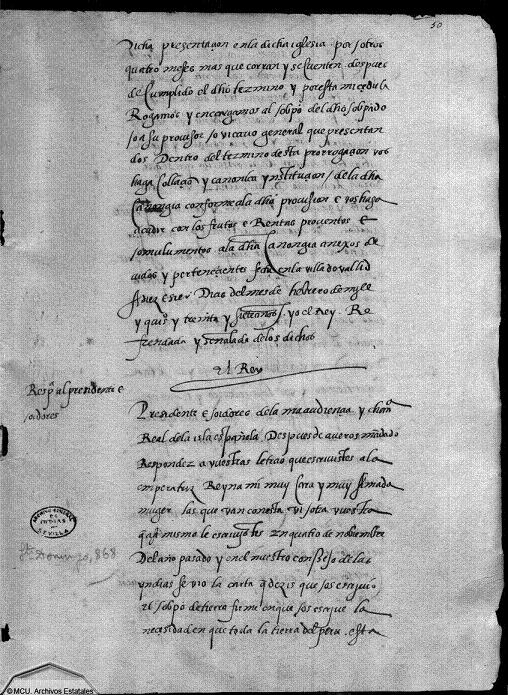 50
Dicha presentaçon en la dicha iglesia por otros
quatro meses mas que corran y se cuenten despues
de Cumplido el dho termino y por esta mi cedula
Rogamos y encargamos al obpo del dho obpado
o a su provisor o vicario general que presentan
dos Dentro del termino desta prorrogaçon vos
haga Collaçion y canonica ynstituçon de la dha
Canongia conforme a la dha provision e vos haga
acudir con los frutos e Rentas proventos e
emolumentos a la dha Canongia anexos de
vidos y pertenecientes fha en la villa de vallid
a diez e seis Dias del mes de hebrero de myll
y quios y treinta y siete años yo el Rey Re
frendada y señalada de los dichos
El Rey
Respta al presidente e
oidores
Presidente e oidores de la nra audiençia y chanа
Real de la isla española Despues de averos mandado
Responder a vuestras letras que escrivistes a la
emperatriz Reyna mi muy Cara y muy amada
muger las que van con esta vi otra vuestra
que a mi mismo le escrivistes en quatro de noviembre
Del año pasado y en el nuestro consejo de las
yndias se vio la carta q dezis que os escrivio
el obpo de tierra firme en que os escrive la
necesidad en que toda la tierra del peru esta
ARCHIVO GENERAL DE INDIAS SEVILLA
Sto Domingo, 868
© MCU. Archivos Estatales